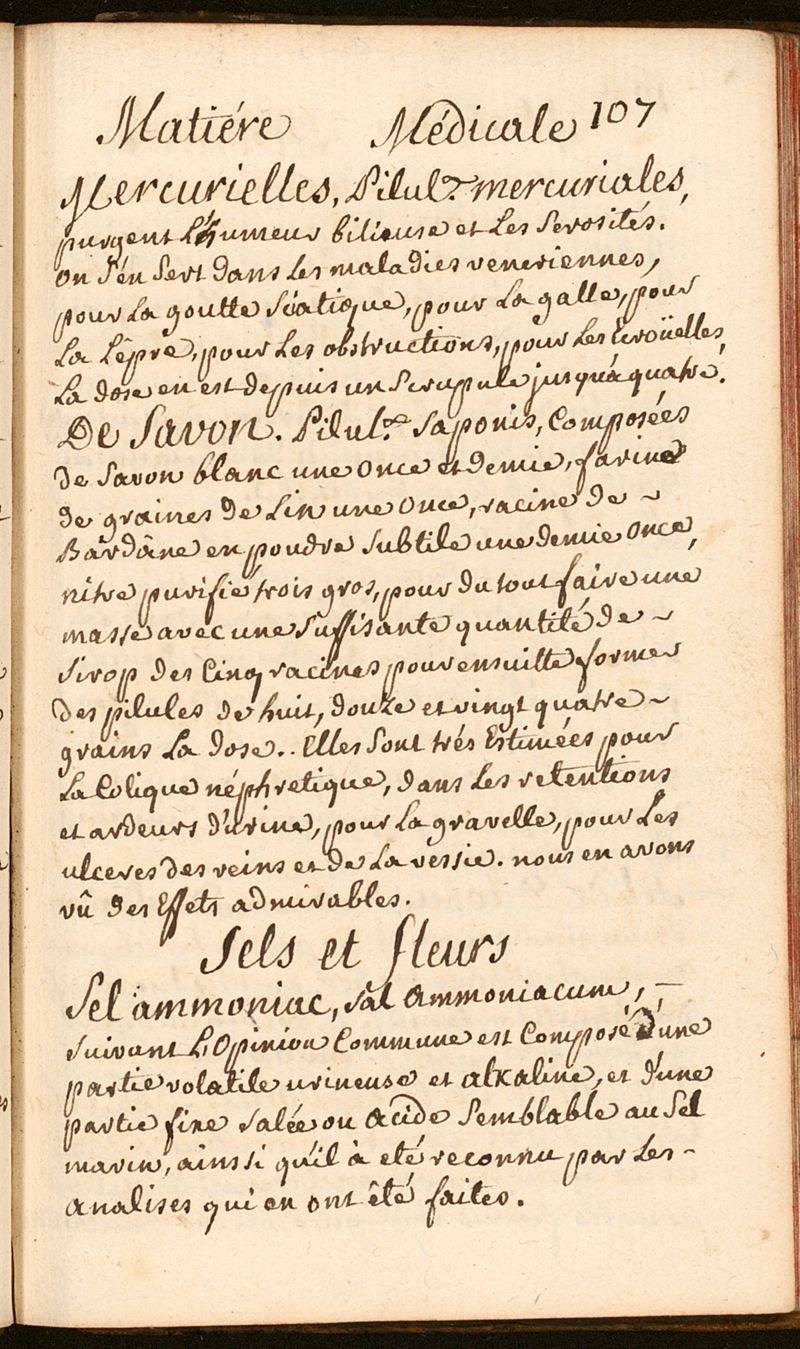 Matiére Médicale 107
Mercurielles, Pilul.æ mercuriales,
purgent L'humeur bilieuse et Les Serosités.
on s'en Sert dans Les maladies veneriennes,
pour La goutte Sciatique, pour La galle, pour
La Lêpre, pour Les obstructions, pour Les Ecroüelles,
La dose en est depuis un Scrupule jusqu'à quatre.
De Savon. Pilul.æ Saponis, Composées
de Savon blanc une Once et demie, farine
de graines de Lin une Once, racine de ~
Bardâne en poudre Subtile une demie Once,
nitre purifié trois gros, pour du tout faire une
masse avec une Suffisante quantité de ~
Sirop des Cinq racines pour ensuitte former
des pilules de huit, douze et vingt quatre ~
grains La dose.. Elles Sont trés Estimées pour
La Colique néphretique, dans Les retentions
et ardeurs d'urine, pour La gravelle, pour Les
ulceres des reins et de La vessie. nous en avons
vû des Effets admirables.
Sels et fleurs
Sel ammoniac, Sal Ammoniacum, —
Suivant L'Opinion Commune est Composé d'une
partie volatile urineuse et alkaline, et d'une
partie fixe Salée ou Acide Semblable au Sel
marin, ainssi qu'il à eté reconnu par Les -
analises qui en ont êté faites.